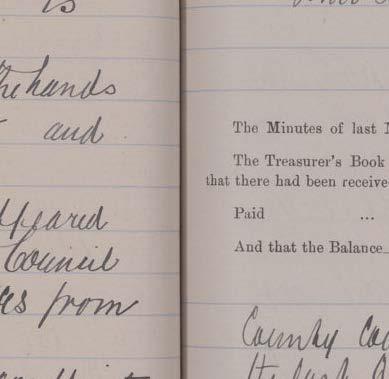 is
the hands
and
ppeared
Council
es from
The Minutes of last
The Treasurer's Book
that there had been receive
Paid ...
And that the Balance
County Co